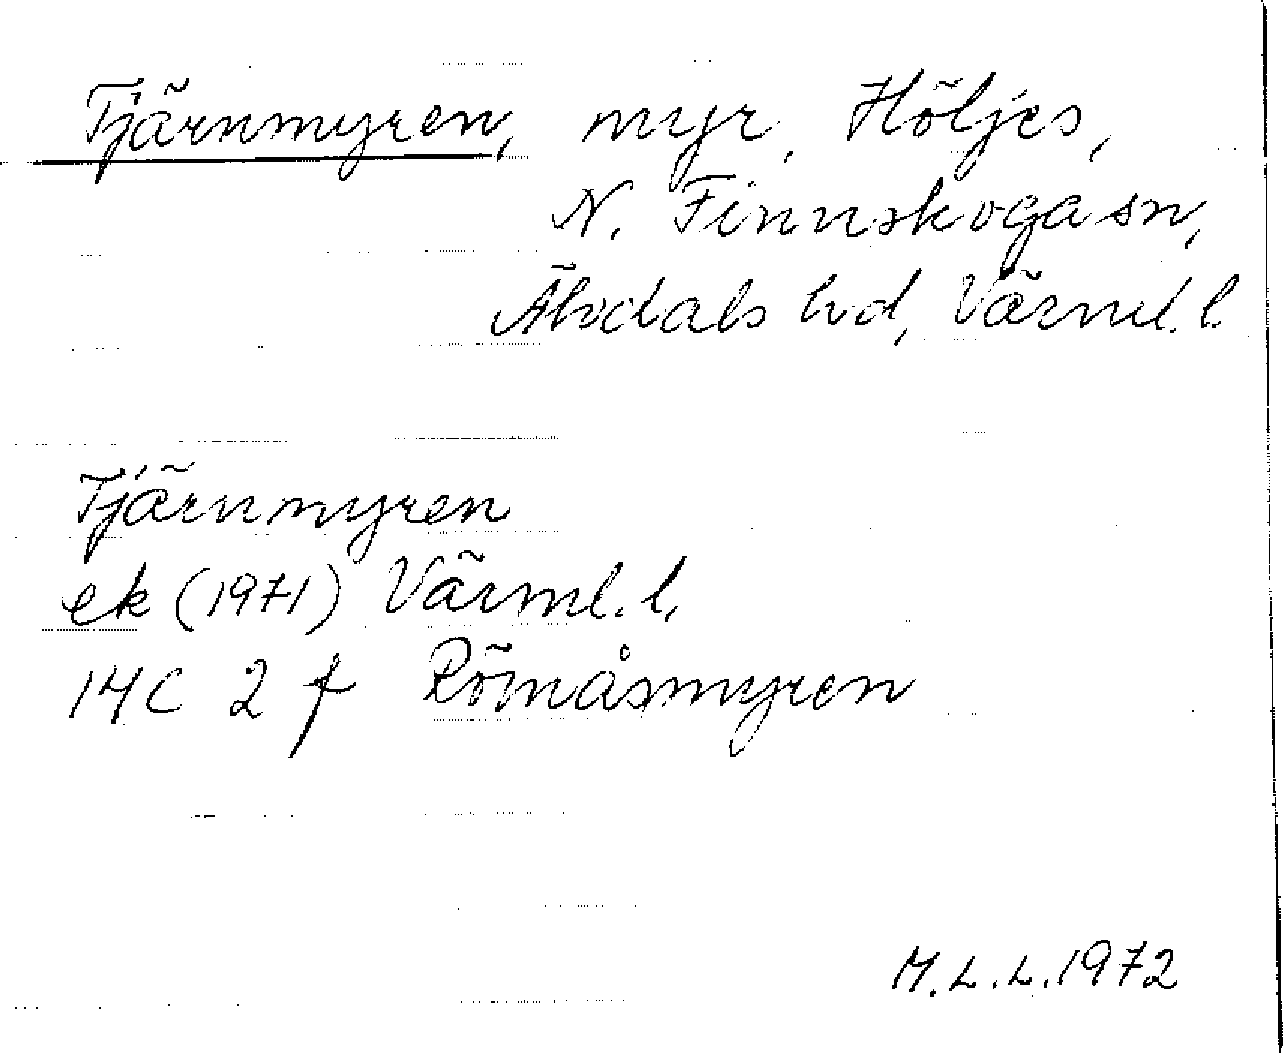 Tjärnmyren, myr, Höljes,
N. Finnskoga sn,
Älvdals hd, Värml. l.
Tjärnmyren
ek (1971) Värml. l.
14C 2 f Römåsmyren
M.L.L. 1972